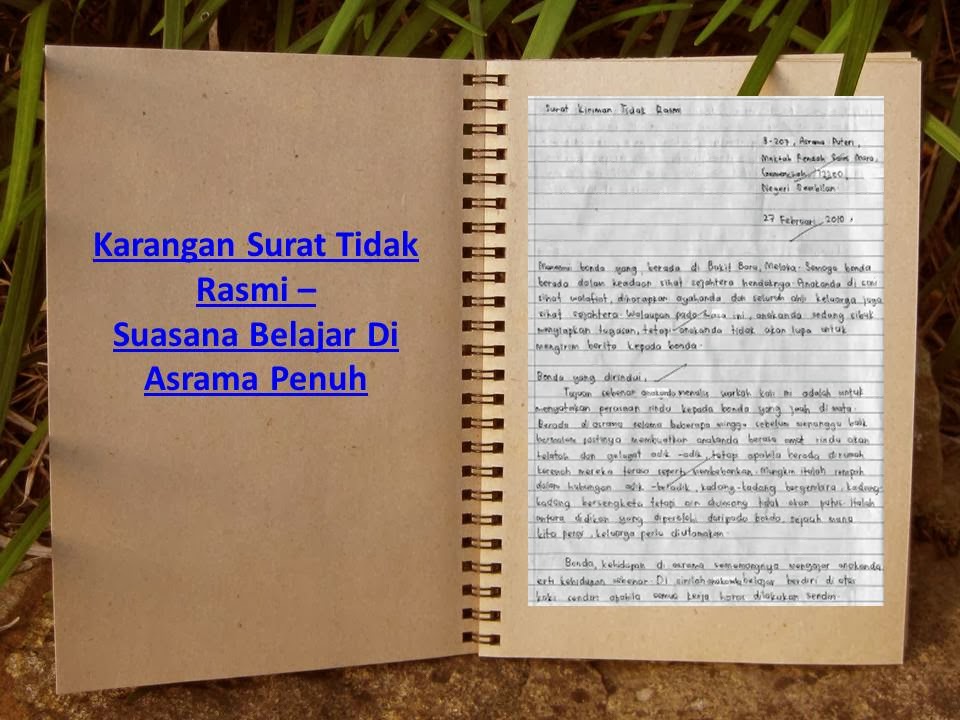 Karangan Surat Tidak
Rasmi –
Suasana Belajar Di
Asrama Penuh
Surat Kiriman Tidak Rasmi
B-207, Asrama Puteri,
Maktab Rendah Sains Mara,
72200,
Negeri Sembilan.
27 Februari 2010.
Menemui bonda yang berada di Bukit Baru, Melaka. Semoga bonda
berada dalam keadaan sihat sejahtera hendaknya. Anakanda di sini
sihat walafiat, diharapkan ayahanda dan seluruh ahli keluarga juga
sihat sejahtera. Walaupun pada masa ini, anakanda sedang sibuk
menyiapkan tugasan, tetapi anakanda tidak akan lupa untuk
mengirim berita kepada bonda.
Bonda yang dirindui,
Tujuan sebenar anakanda menulis warkah kali ini adalah untuk
menyatakan perasaan rindu kepada bonda yang jauh di mata.
Berada di asrama selama beberapa minggu sebelum menunggu balik
bermalam pastinya membuatkan anakanda berasa amat rindu akan
telatah dan gelagat adik-adik, tetapi apabila berada dirumah
kerenah mereka terasa seperti membebankan. Mungkin itulah rempah
dalam hubungan adik-beradik, kadang-kadang bergembira, kadang-
kadang bersengketa tetapi air dicincang tidak akan putus. Itulah
antara didikan yang diperolehi daripada bonda, sejauh mana
kita pergi, keluarga perlu diutamakan.
Bonda, kehidupan di asrama sememangnya mengajar anakanda
erti kehidupan sebenar. Di sinilah anakanda belajar berdiri di atas
kaki sendiri apabila semua kerja harus dilakukan sendiri.